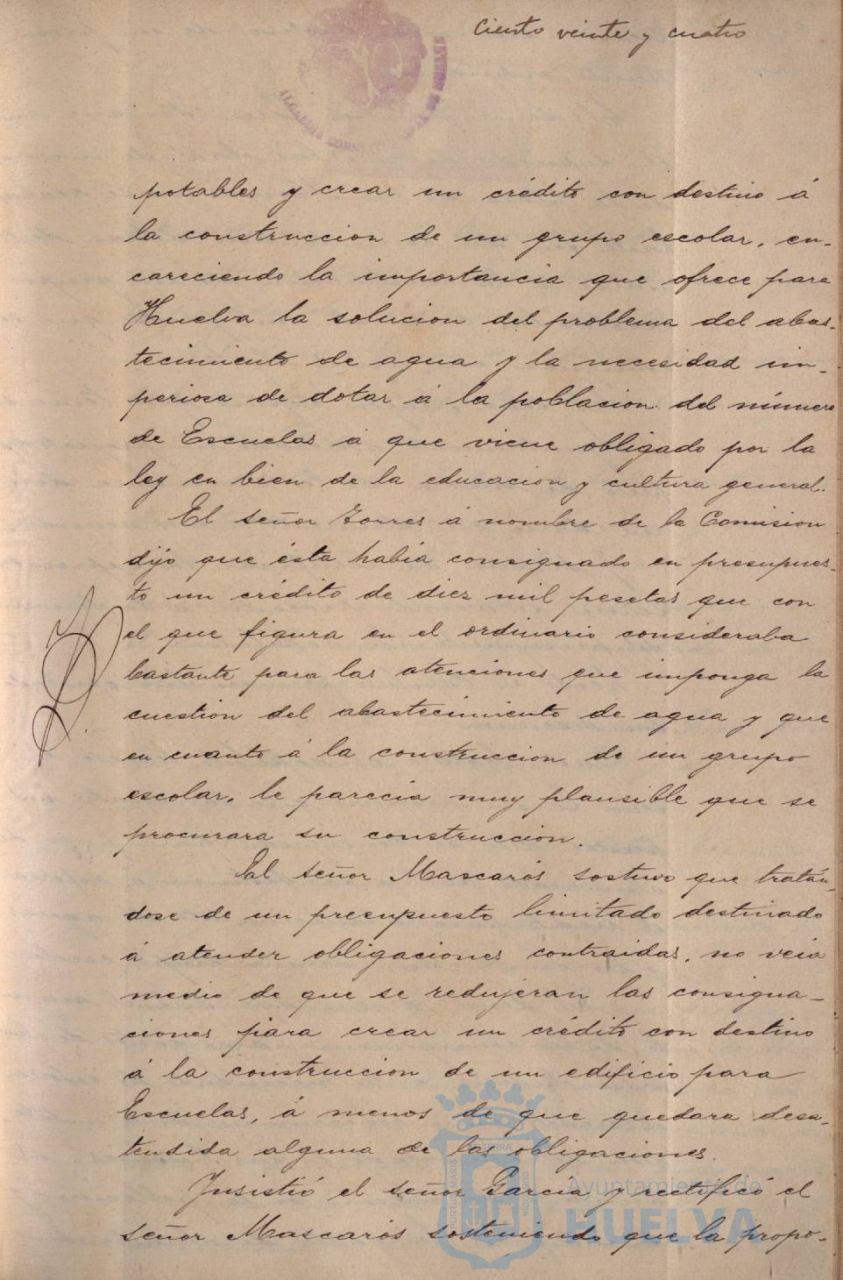 Ciento veinte y cuatro
potables y crear un crédito con destino á
la construccion de un grupo escolar, en-
careciendo la importancia que ofrece para
Huelva la solucion del problema del abas-
tecimiento de agua y la necesidad im-
periosa de dotar á la poblacion del número
de Escuelas á que viene obligado por la
ley en bien de la educacion y cultura general.
El señor Torres á nombre de la Comision
dijo que ésta habia consignado en presupues-
to un crédito de diez mil pesetas que con
el que figura en el ordinario consideraba
bastante para las atenciones que imponga la
cuestion del abastecimiento de agua y que
en cuanto á la construccion de un grupo
escolar, le parecia muy plausible que se
procurara su construccion.
El señor Mascarós sostuvo que tratán-
dose de un presupuesto limitado destinado
á atender obligaciones contraidas, no veia
medio de que se redujeran las consigna-
ciones para crear un crédito con destino
á la construccion de un edificio para
Escuelas, á menos de que quedara desa-
tendida alguna de las obligaciones.
Insistió el señor Garcia y rectificó el
señor Mascarós sosteniendo que la propo-
Ayuntamiento de
HUELVA